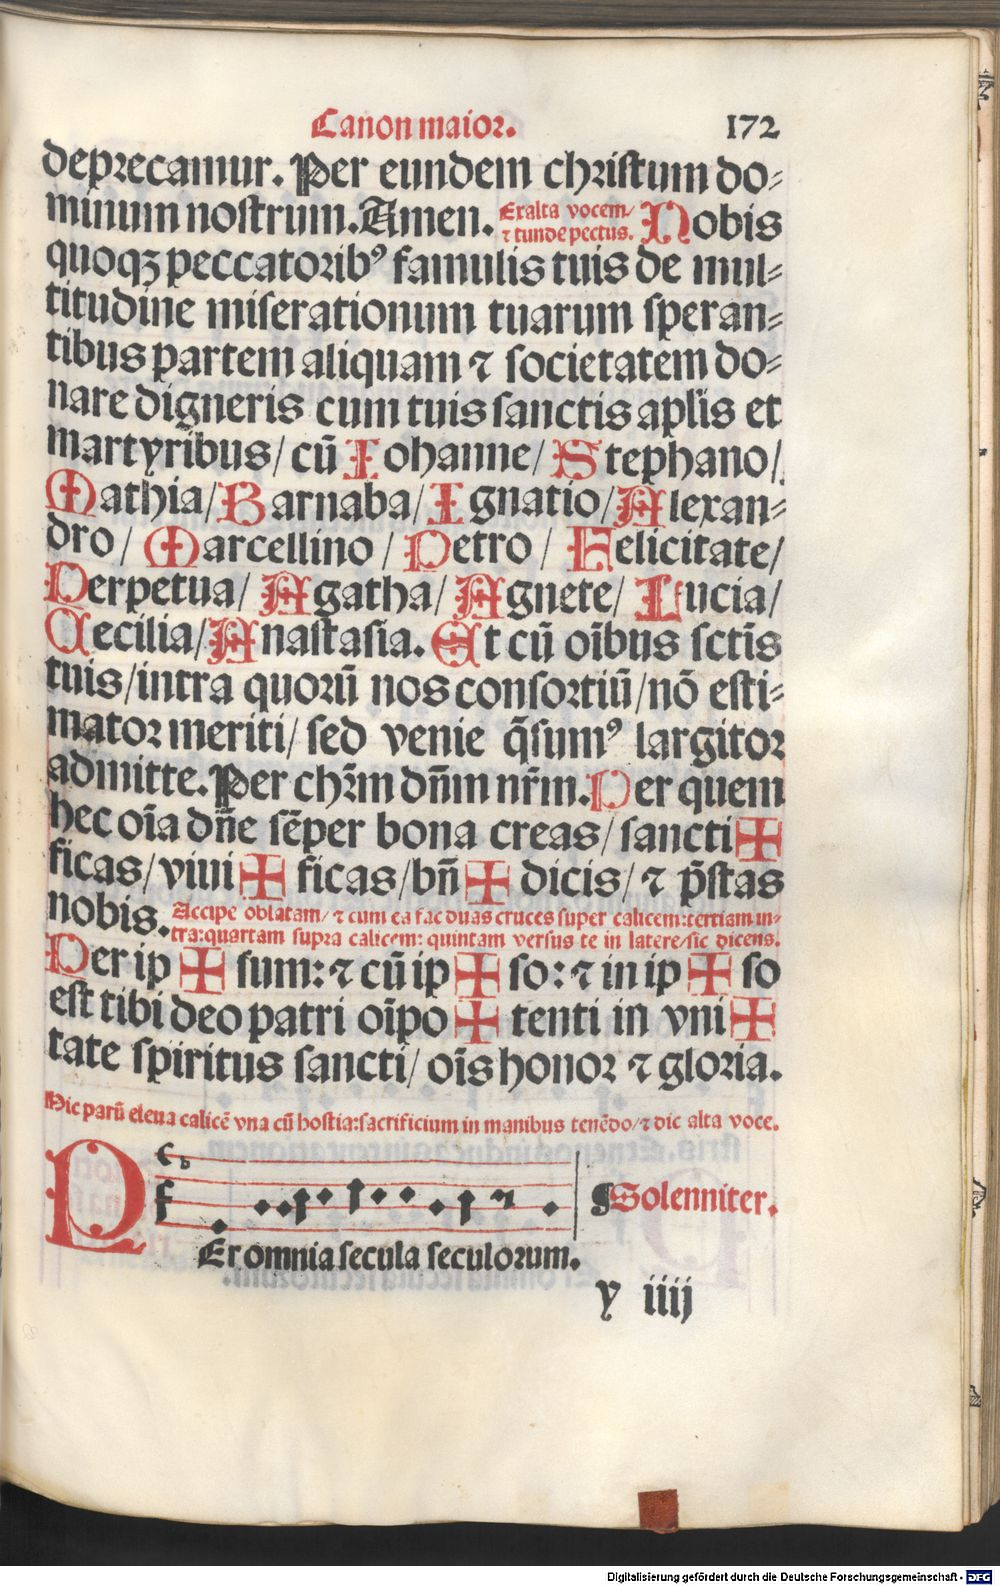 Canon maior. 172
deprecamur. Per eundem christum do⸗
minum nostrum. Amen. Exalta vocem/ Nobis
⁊ tunde pectus.
quoqꝫ peccatoribꝰ famulis tuis de mul⸗
titudine miserationum tuarum speran⸗
tibus partem aliquam ⁊ societatem do⸗
nare digneris cum tuis sanctis aplis et
martyribus/ cū Iohanne/ Stephano/
Mathia/ Barnaba/ Ignatio/ Alexan⸗
dro/ Marcellino/ Petro/ Felicitate/
Perpetua/ Agatha/ Agnete/ Lucia/
Cecilia/ Anastasia. Et cū oībus sctīs
tuis/ intra quorū nos consortiū/ nō esti⸗
mator meriti/ sed venie q̄sumꝰ largitor
admitte. Per chr̄m dn̄m nr̄m. Per quem
hec oīa dn̄e sēper bona creas/ sancti ✠
ficas/ viui ✠ ficas/ bn̄ ✠ dicis/ ⁊ p̄stas
nobis. Accipe oblatam/ ⁊ cum ea fac duas cruces super calicem: tertiam in⸗
tra: quartam supra calicem: quintam versus te in latere/ sic dicens.
Per ip ✠ sum: ⁊ cū ip ✠ so: ⁊ in ip ✠ so
est tibi deo patri oīpo ✠ tenti in vni ✠
tate spiritus sancti/ oīs honor ⁊ gloria.
Hic parū eleua calicē vna cū hostia: sacrificium in manibus tenēdo/ ⁊ dic alta voce.
¶ Solenniter.
Per omnia secula seculorum.
y iiij
Digitalisierung gefördert durch die Deutsche Forschungsgemeinschaft - DFG